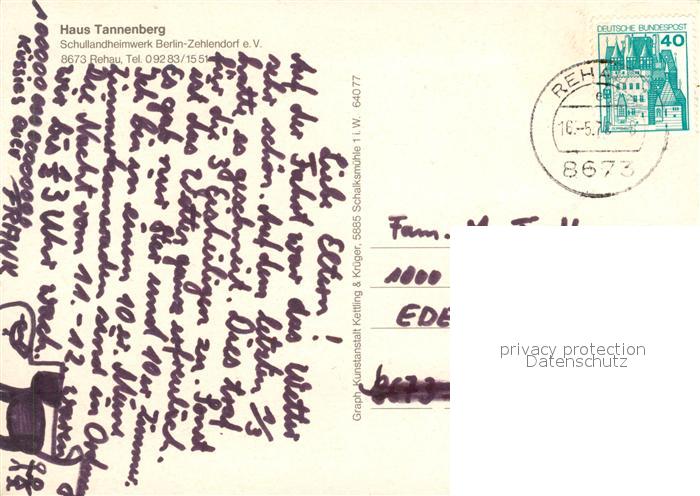 Haus Tannenberg
Schullandheimwerk Berlin-Zehlendorf e.V.
8673 Rehau, Tel. 09283/1551
DEUTSCHE BUNDESPOST
40
REHAU
16.-5.7
8673
Liebe Eltern!
Auf der Fahrt war das Wetter
sehr schön. Auf den letzten 1/3
hatte es geschneit. Dies traf
für die 3 Eisheiligen zu. Sonst
ist das Wetter ganz erfreulich.
Es gibt nur 8er und 10er Zimmer.
Ich bin in einem 10er. Meine
Zimmerkameraden sind in Ordnung.
Die Nacht vom 11.-12. waren
wir bis 3 Uhr wach.
1000.000000000000
Küsse Euer
FRANK
Graph. Kunstanstalt Kettling & Krüger, 5885 Schalksmühle 1 i. W. 64077
Fam. M.
1000
EDE
8673
privacy protection
Datenschutz